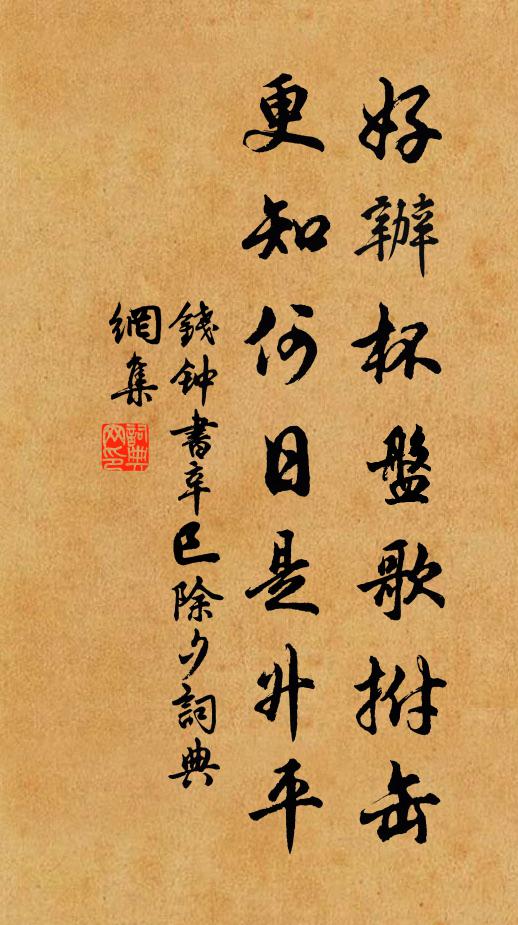 好辦杯盤歌拊缶
更知何日是升平
錢钟書辛巳除夕詞典
網集
詞典
网印